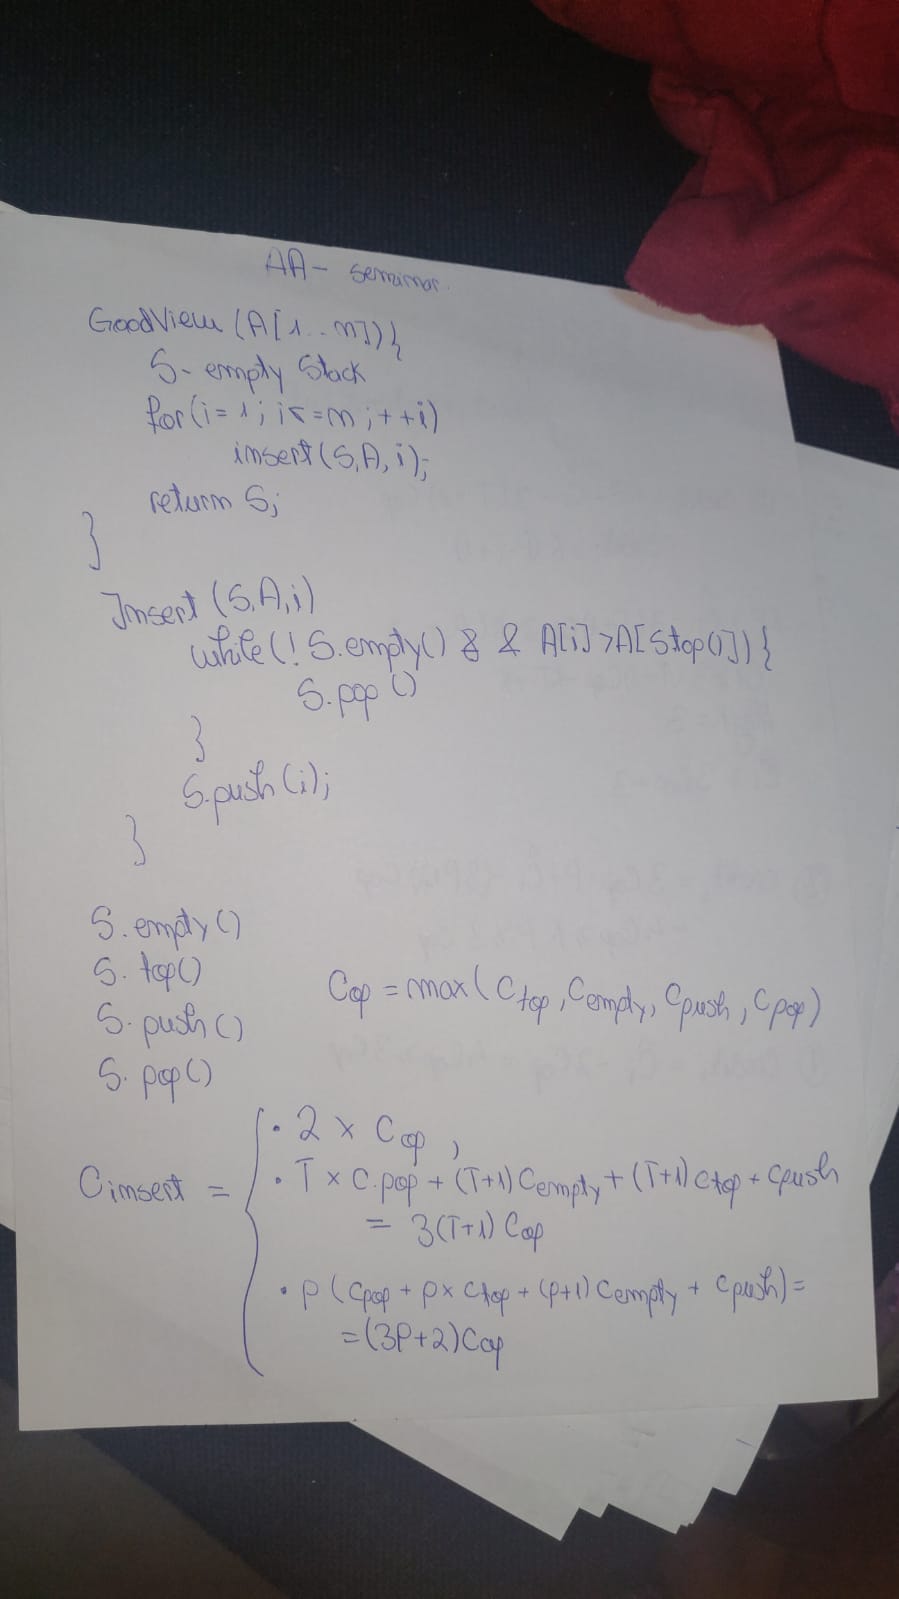 AA - seminar.
GoodView (A[1..n]){
S- empty Stack
for(i=1; i<=n; ++i)
insert(S,A,i);
return S;
}
Insert (S,A,i)
while(! S.empty() && A[i]>A[Stop()]){
S.pop()
}
S.push(i);
}
S.empty()
S. top()
S. push()
S. pop()
Cop = max(Ctop, Cempty, Cpush, Cpop)
Cinsert = {
• 2 x Cop,
• T x C.pop + (T+1)Cempty + (T+1)Ctop + Cpush
= 3(T+1) Cop
• p (Cpop + p x Ctop + (p+1) Cempty + Cpush) =
= (3P+2)Cop